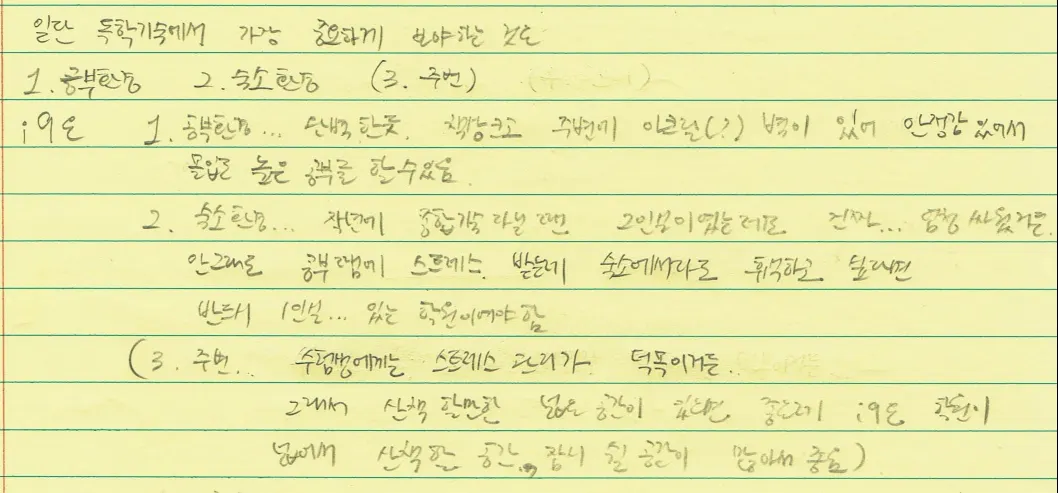 일단 독학기숙에서 가장 중요하게 봐야 하는 것도
1. 공부환경 2. 숙소환경 (3. 주변)
i9은 1. 공부환경... 완벽한듯. 책상크고 주변에 아크릴(?) 벽이 있어 안정감 있어서
몰입도 높은 공부를 할수있음.
2. 숙소환경... 작년에 종합기숙 다닐 땐 2인실이였는데도 진짜... 엄청 싸웠거든.
안그래도 공부땜에 스트레스 받는데 숙소에서라도 휴식하고 싶다면
반드시 1인실... 있는 학원이여야 함
(3. 주변.. 수험생에게는 스트레스 관리가 덕목이거든..
그래서 산책 할만한 넓은 공간이 있다면 좋은데 i9은 학원이
넓어서 산책할 공간, 잠시 쉴 공간이 많아서 좋음)